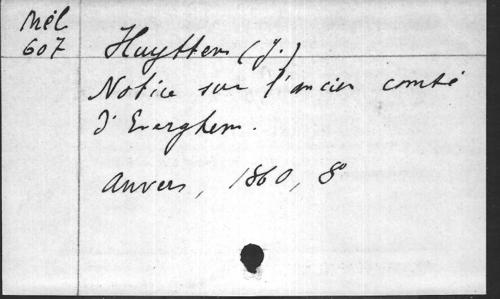 Mél
607
Huyttens (J.)
Notice sur l'ancien comté
d'Everghem.
Anvers, 1860, 8°